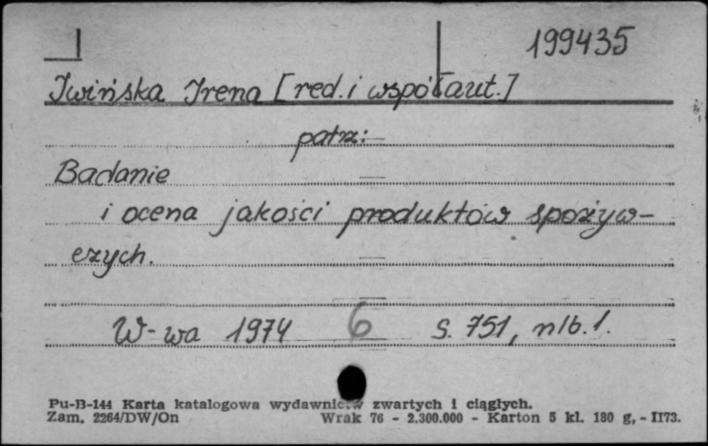 199435
Iwińska Irena [red. i współaut.]
patrz:
Badanie
i ocena jakości produktów spożyw-
czych.
W-wa 1974 6 S. 751, nlb. 1.
Pu-B-144 Karta katalogowa wydawnictw zwartych i ciągłych.
Zam. 2264/DW/On Wrak 76 - 2.300.000 - Karton 5 kl. 180 g. - II73.